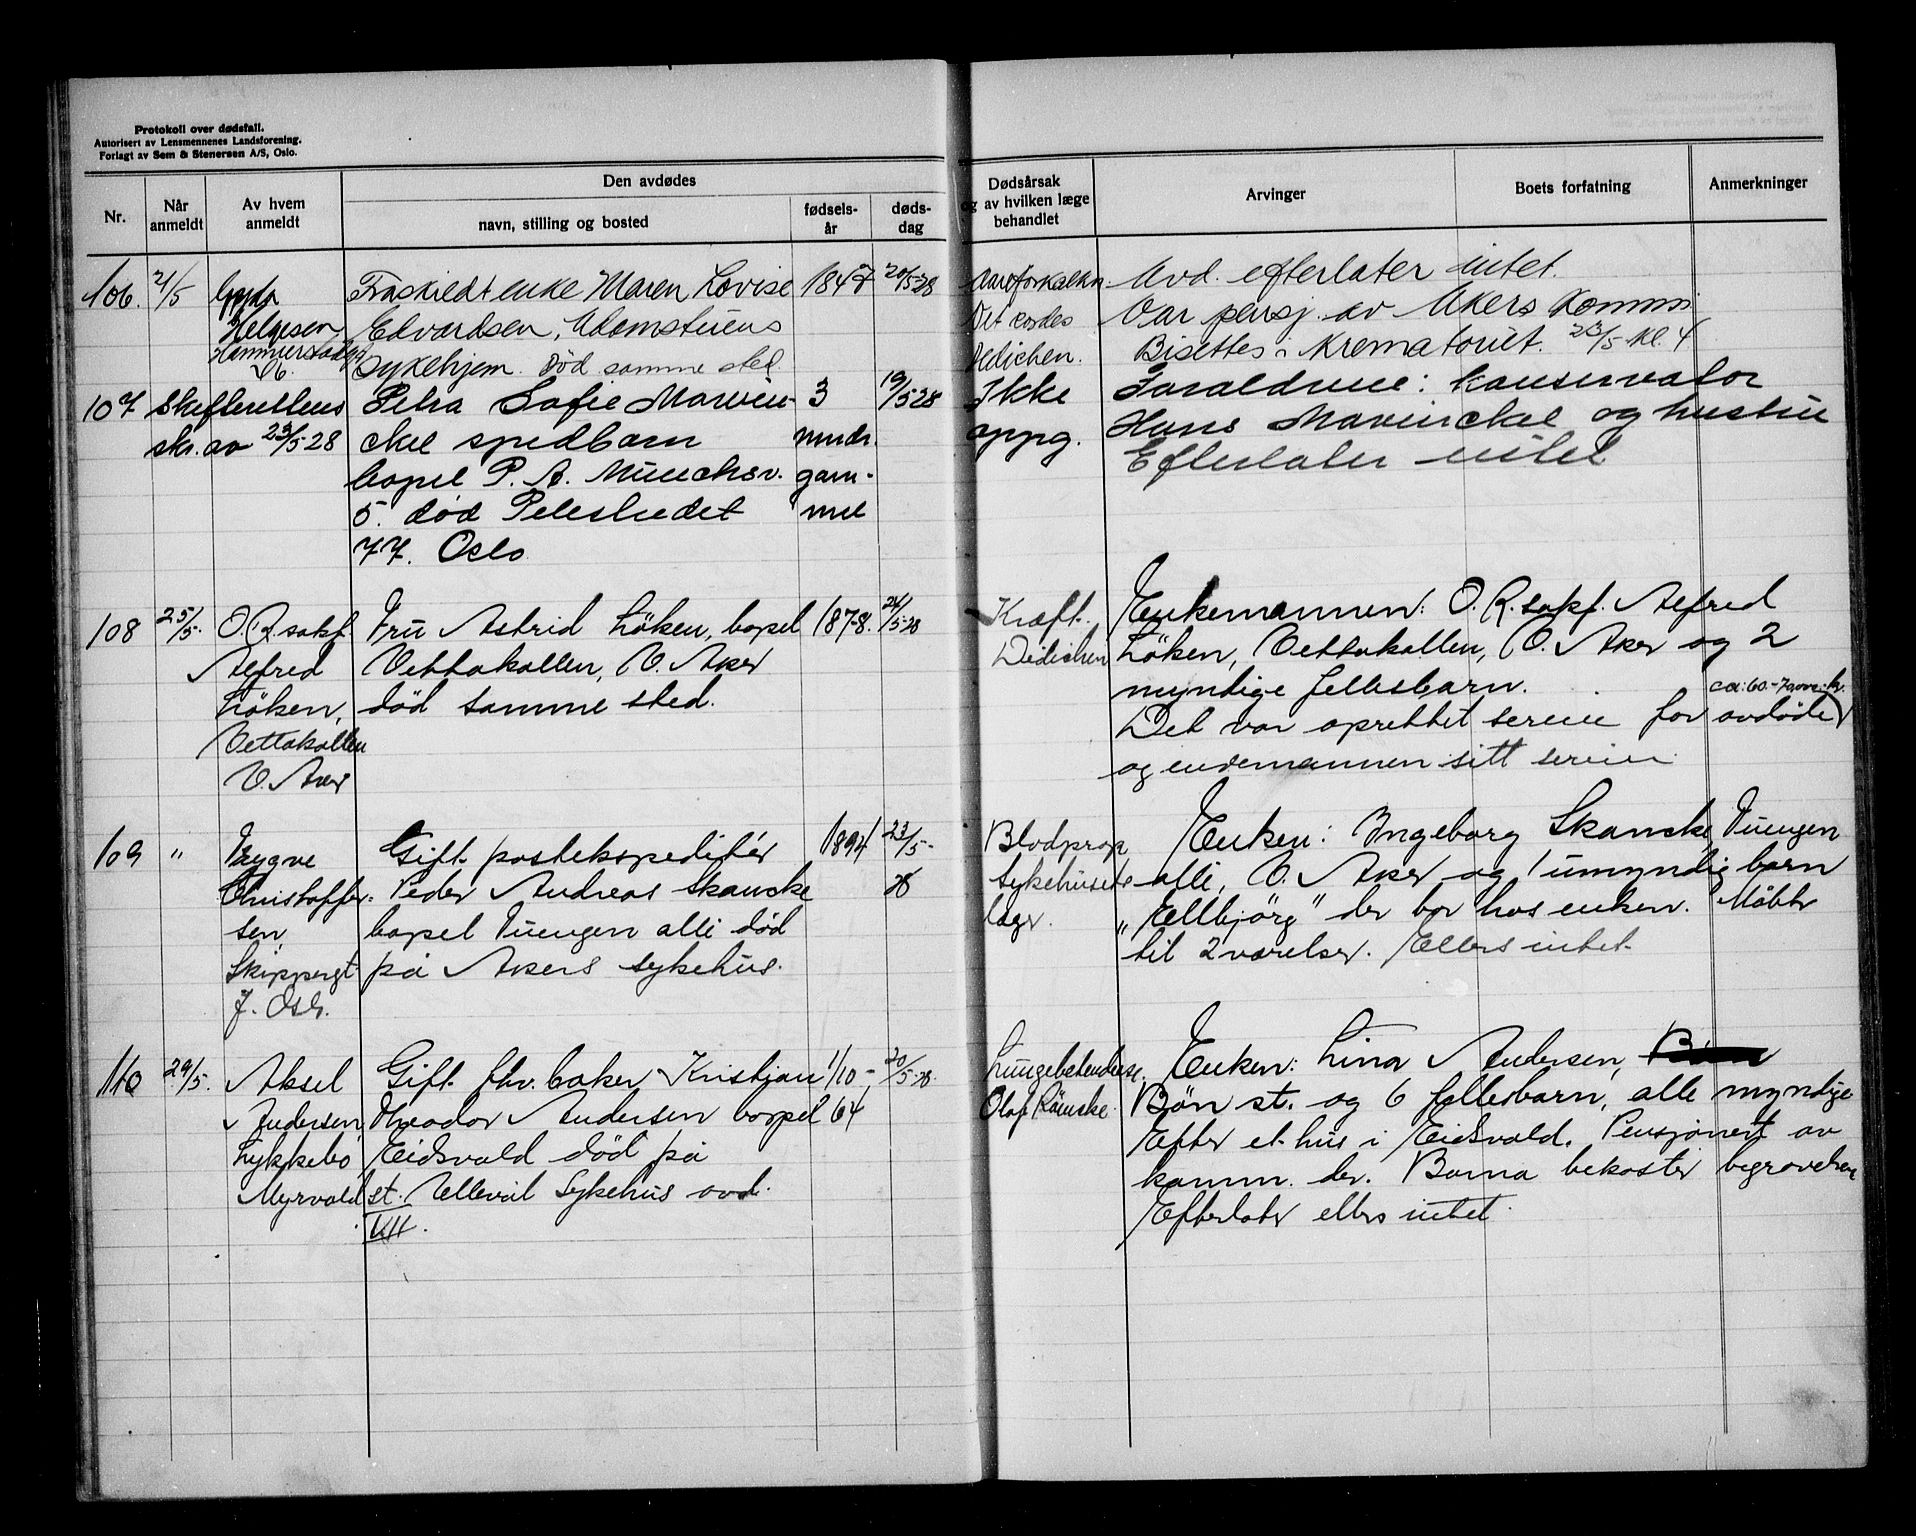 Protokoll over dødsfall.
Autorisert av Lensmennenes Landsforening.
Forlagt av Sem & Stenersen A/S, Oslo.
Nr.
Når anmeldt
Av hvem anmeldt
Den avdødes
navn, stilling og bosted
fødsels-år
døds-dag
Dødsårsak
og av hvilken læge
behandlet
Arvinger
Boets forfatning
Anmerkninger
106. 21/5
Helgesen
Hammerstadgt
Fraskiedt enke Maren Lovise 1847 20/5-28
Edvardsen, Adamstuens
Sykehjem. død samme sted.
Aareforkalkn.
Dedichen.
Avd. efterlater intet.
Var pensj. av Akers Komm.
Bisettes i Krematoriet. 23/5 kl. 4
107 Skifterettens
skr. av 23/5-28
Petra Sofie Marvin- 3 19/5-28
ckel spedbarn mndr.
bopel P. A. Munchsv. gam-
5. død Pilestredet mel
77. Oslo
Ikke
oppg.
Foreldrene: konservator
Hans Marvinckel og hustru
Efterlater intet
108 25/5. O.R.sakf.
Alfred
Löken,
Vettakollen
V. Aker
Fru Astrid Löken, bopel 1878. 24/5-28
Vettakollen, V. Aker
død samme sted.
Kræft.
Dedichen
Enkemannen: O.R.sakf. Alfred
Löken, Vettakollen, V. Aker og 2
myndige fellesbarn.
Det var oprettet særeie for avdøde
og enkemannen sitt særeie
109 " Trygve
Christoffer-
sen,
Skippergt
7. Oslo.
Gift postekspeditør 1894 23/5-28
Peder Andreas Skancke
bopel Tuengen alle død
på Akers sykehus.
Blodprop
Sykehusets
læger.
Enken: Ingeborg Skancke, Tuengen
alle, V. Aker og 1 umyndig barn
"Ellbjörg" der bor hos enken. Möbler
til 2 værelser. Ellers intet.
110 29/5. Aksel
Andersen
Lykkebo
Myrvold st.
Gift fhv. baker Kristjan 1/10- 20/5-28.
Theodor Andersen bopel 64
Eidsvold død på
Ullevål Sykehus avd.
VII.
Lungebetendelse.
Olaf Römcke.
Enken: Lina Andersen,
Bøn st. og 6 fellesbarn, alle myndige
Efter et hus i Eidsvold. Pensjonert av
komm. der. Barna bekoster begravelsen
Efterlater ellers intet.